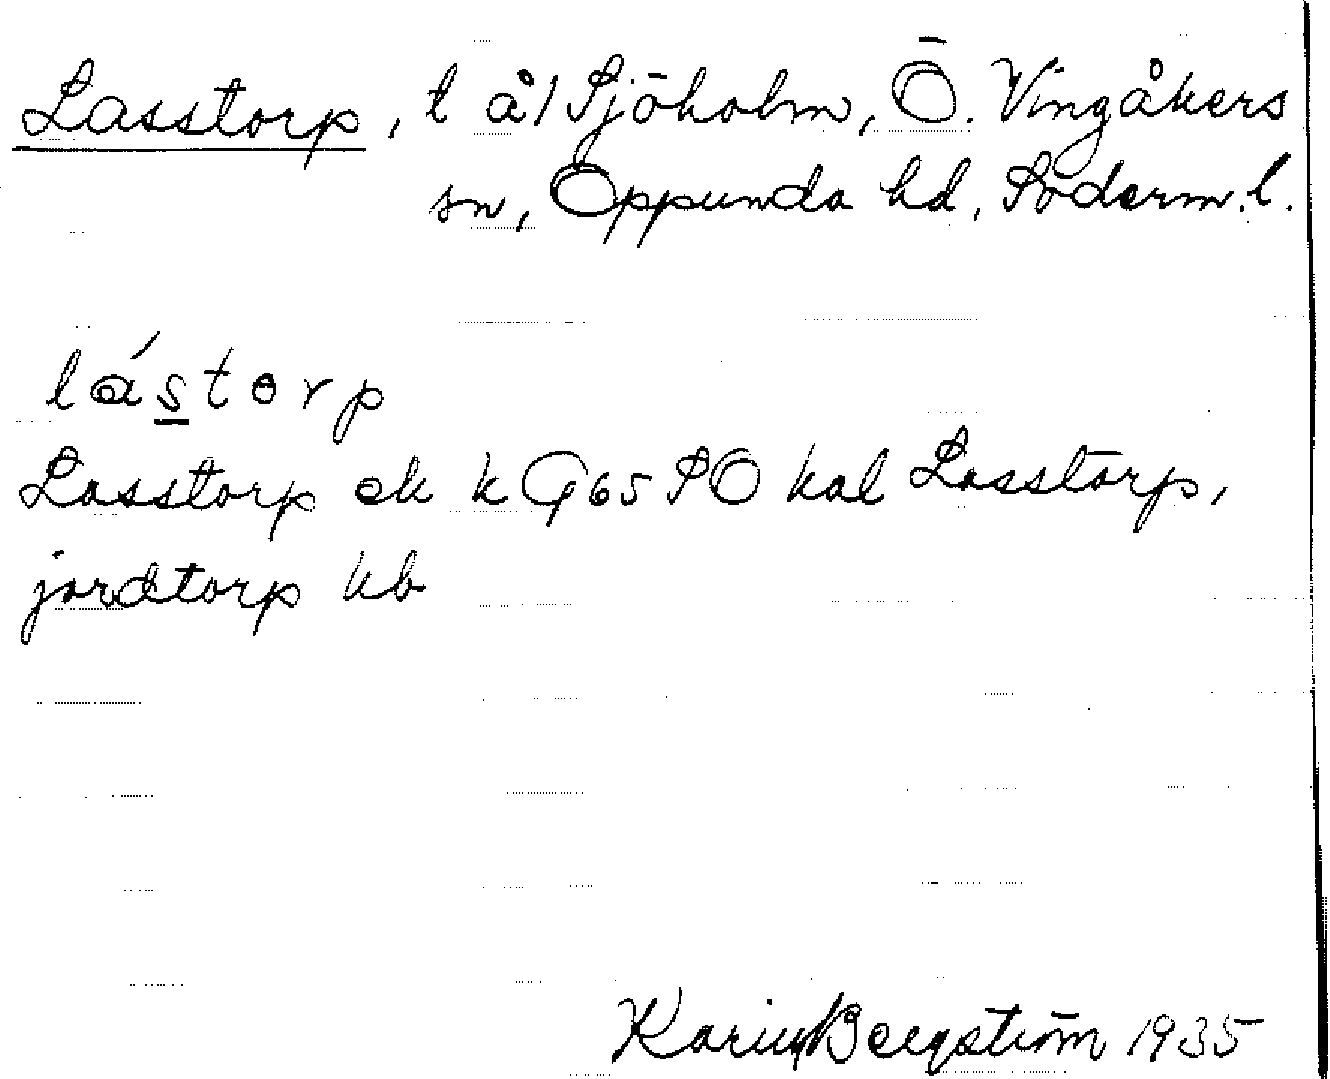 Lasstorp, t å/ Sjöholm, Ö. Vingåkers
sn, Oppunda hd, Söderm. l.
lástorp
Lasstorp ek kG65 SO kal Lasstorp,
jordtorp hb
Karin Bergström 1935